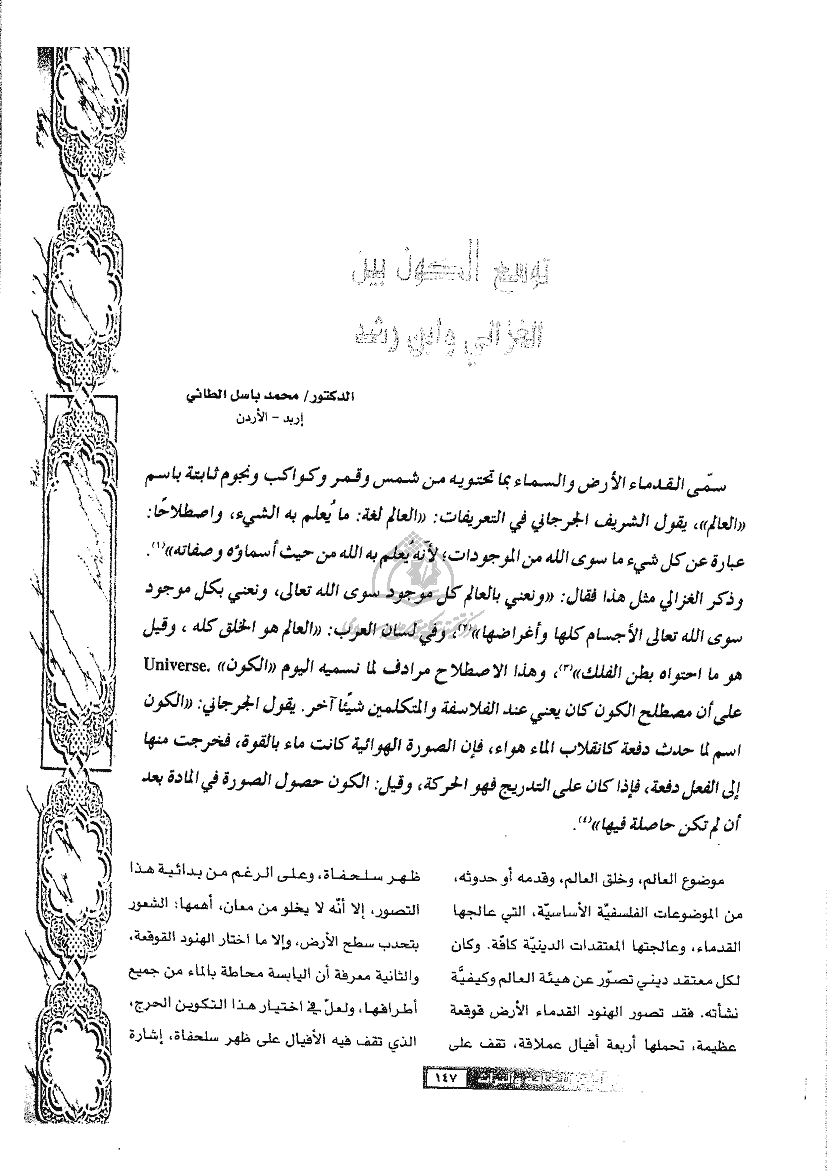 توسع الكون بين
الغزالي وابن رشد
الدكتور/ محمد باسل الطائي
إربد – الأردن
سمّى القدماء الأرض والسماء بما تحتويه من شمس وقمر وكواكب ونجوم ثابتة باسم
«العالم»، يقول الشريف الجرجاني في التعريفات: «العالم لغة: ما يُعلم به الشيء، واصطلاحًا:
عبارة عن كل شيء ما سوى الله من الموجودات؛ لأنه يُعلم به الله من حيث أسماؤه وصفاته»(١).
وذكر الغزالي مثل هذا فقال: «ونعني بالعالم كل موجود سوى الله تعالى، ونعني بكل موجود
سوى الله تعالى الأجسام كلها وأغراضها»(٢)، وفي لسان العرب: «العالم هو الخلق كله ، وقيل
هو ما احتواه بطن الفلك»(٣)، وهذا الاصطلاح مرادف لما نسميه اليوم «الكون» Universe.
على أن مصطلح الكون كان يعني عند الفلاسفة والمتكلمين شيئًا آخر. يقول الجرجاني: «الكون
اسم لما حدث دفعة كانقلاب الماء هواء، فإن الصورة الهوائية كانت ماء بالقوة، فخرجت منها
إلى الفعل دفعة، فإذا كان على التدريج فهو الحركة، وقيل: الكون حصول الصورة في المادة بعد
أن لم تكن حاصلة فيها»(٤).
موضوع العالم، وخلق العالم، وقدمه أو حدوثه،
من الموضوعات الفلسفيّة الأساسيّة، التي عالجها
القدماء، وعالجتها المعتقدات الدينيّة كافّة. وكان
لكل معتقد ديني تصوّر عن هيئة العالم وكيفيَّة
نشأته. فقد تصور الهنود القدماء الأرض قوقعة
عظيمة، تحملها أربعة أفيال عملاقة، تقف على
ظهر سلحفاة، وعلى الرغم من بدائية هذا
التصور، إلا أنّه لا يخلو من معان، أهمها: الشعور
بتحدب سطح الأرض، وإلا ما اختار الهنود القوقعة،
والثانية معرفة أن اليابسة محاطة بالماء من جميع
أطرافها، ولعلّ في اختيار هذا التكوين الحرج،
الذي تقف فيه الأفيال على ظهر سلحفاة، إشارة
١٤٧